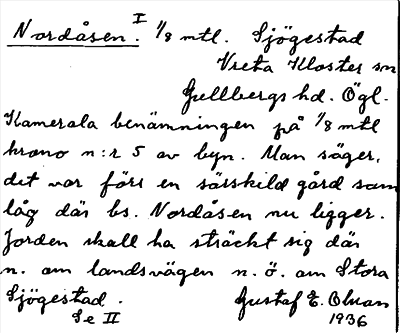 Nordåsen. I 1/8 mtl. Sjögestad
Vreta Kloster sn
Gullbergs hd. Ögl.
Kamerala benämningen på 1/8 mtl
krono n:r 5 av byn. Man säger,
det var förr en särskild gård som
låg där bs. Nordåsen nu ligger.
Jorden skall ha sträckt sig där
n. om landsvägen n.ö. om Stora
Sjögestad. Gustaf E. Olman
Se II 1936